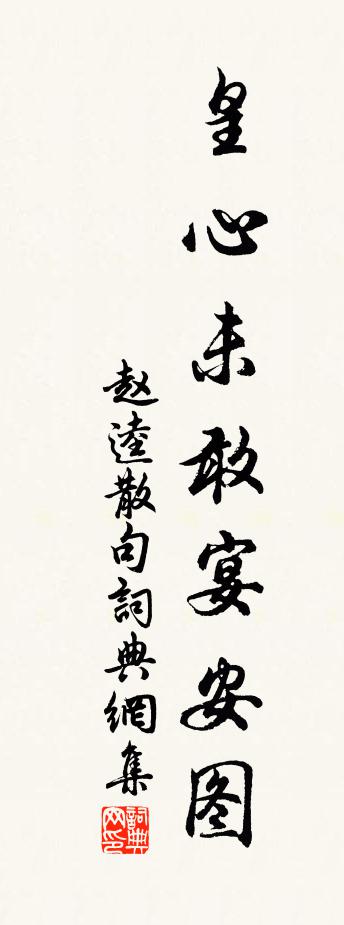 皇心未敢宴安图
赵逵散句詞典網集
詞典网印